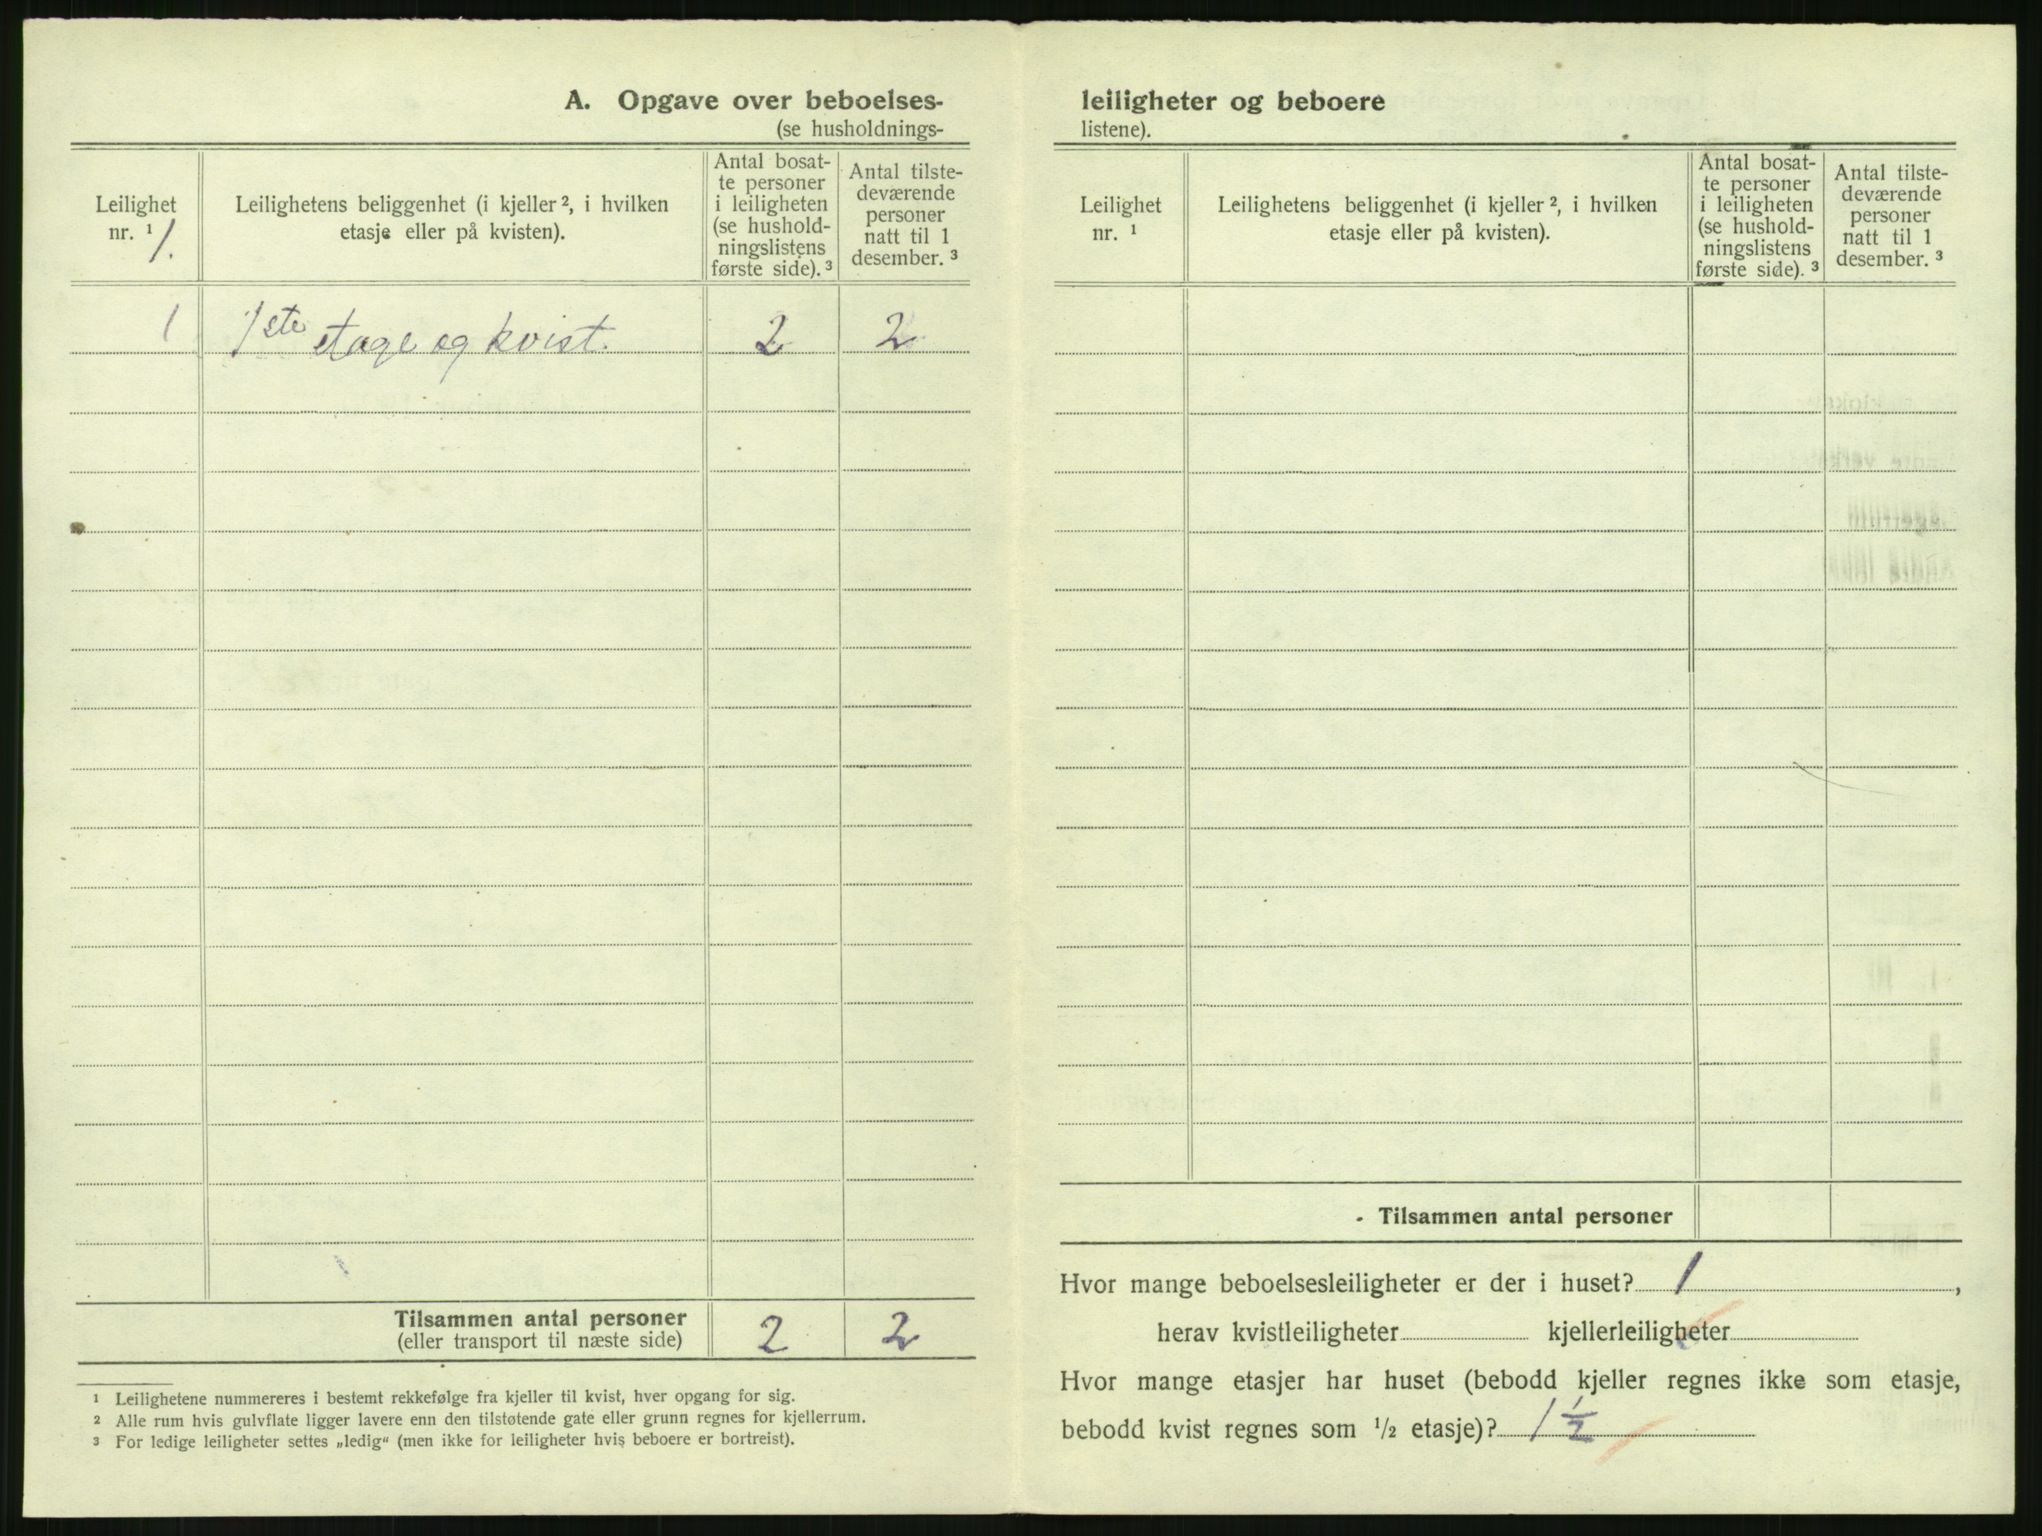 A. Opgave over beboelses-
(se husholdnings-
Leilighet
nr. ¹
1.
Leilighetens beliggenhet (i kjeller ², i hvilken
etasje eller på kvisten).
Antal bosat-
te personer
i leiligheten
(se hushold-
ningslistens
første side). ³
Antal tilste-
deværende
personer
natt til 1
desember. ³
1 1ste etage og kvist. 2 2
Tilsammen antal personer 2 2
(eller transport til næste side)
¹ Leilighetene nummereres i bestemt rekkefølge fra kjeller til kvist, hver opgang for sig.
² Alle rum hvis gulvflate ligger lavere enn den tilstøtende gate eller grunn regnes for kjellerrum.
³ For ledige leiligheter settes „ledig“ (men ikke for leiligheter hvis beboere er bortreist).
leiligheter og beboere
listene).
Leilighet
nr. ¹
Leilighetens beliggenhet (i kjeller ², i hvilken
etasje eller på kvisten).
Antal bosat-
te personer
i leiligheten
(se hushold-
ningslistens
første side). ³
Antal tilste-
deværende
personer
natt til 1
desember. ³
Tilsammen antal personer
Hvor mange beboelsesleiligheter er der i huset? 1 ,
herav kvistleiligheter kjellerleiligheter
Hvor mange etasjer har huset (bebodd kjeller regnes ikke som etasje,
bebodd kvist regnes som ½ etasje)? 1 ½